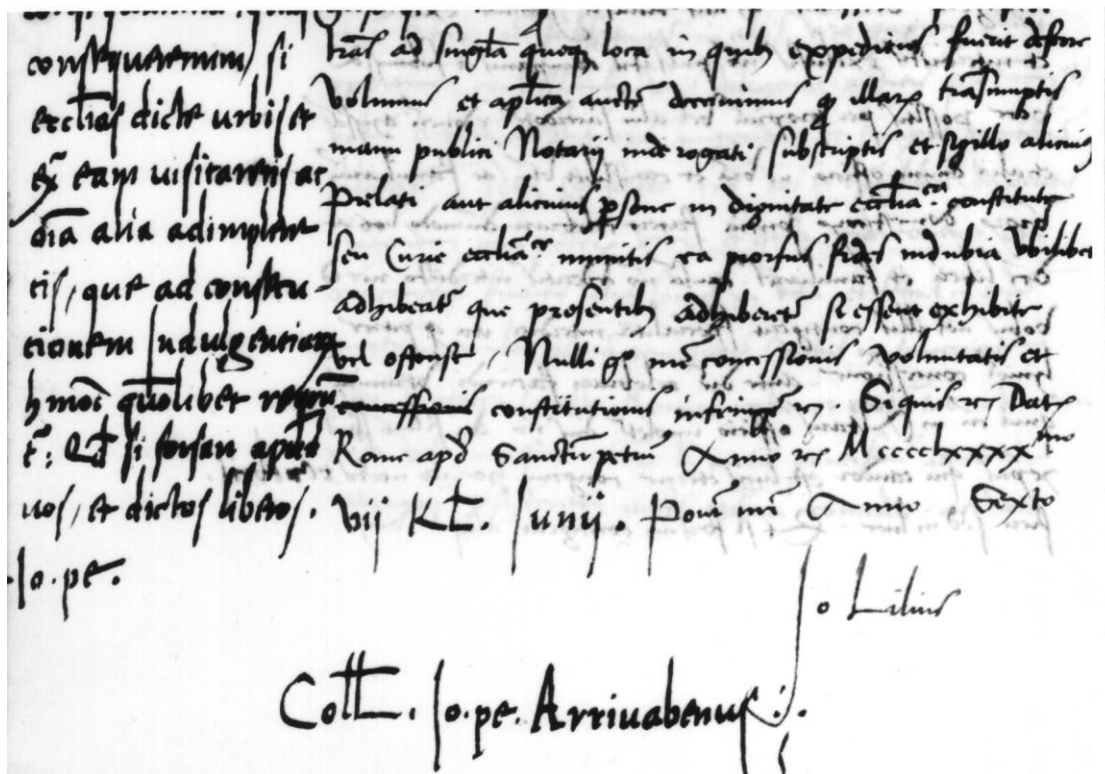 consequerentur, si
eccl̃ias dicte urbis et
ex̃ eam uisitantes ac
oĩa alia adimplen
tis, que ad consecu-
tionem Indulgentiarꝝ
hmõi q̃uolibet
et̃: Qđ si forsan apud
uos, et dictos liberos.
.Io.pe.
tras ad singl̃a queq̃ loca in quibꝫ expediens fuerit deferre
volumus et apl̃ica aucte decernimus ꝙ illarꝝ trãsumptis
manu publici Notarij inde rogati, subscriptis et sigillo alicuius
Prelati aut alicuius p̱sone in dignitate eccl̃iaca constitute
seu Curie eccl̃iace munitis ea prorsus fides indubia ubilibet
adhibeat̃ que presentibꝫ adhiberet̃ si essent exhibite
vel ostense, Nulli g° nr̃e concessionis voluntatis et
concessionis constitutionis infringere rc̃ Siquis rc̃ Datꝝ
Rome apd̃ Sanctũ petrũ Anno rc̃ Mcccclxxxx^mo
vij Kl̃. Iunij. Pont̃ nr̃i Anno Sexto
Io Lilius
Coll̃. Io.pe. Arriuabenus.